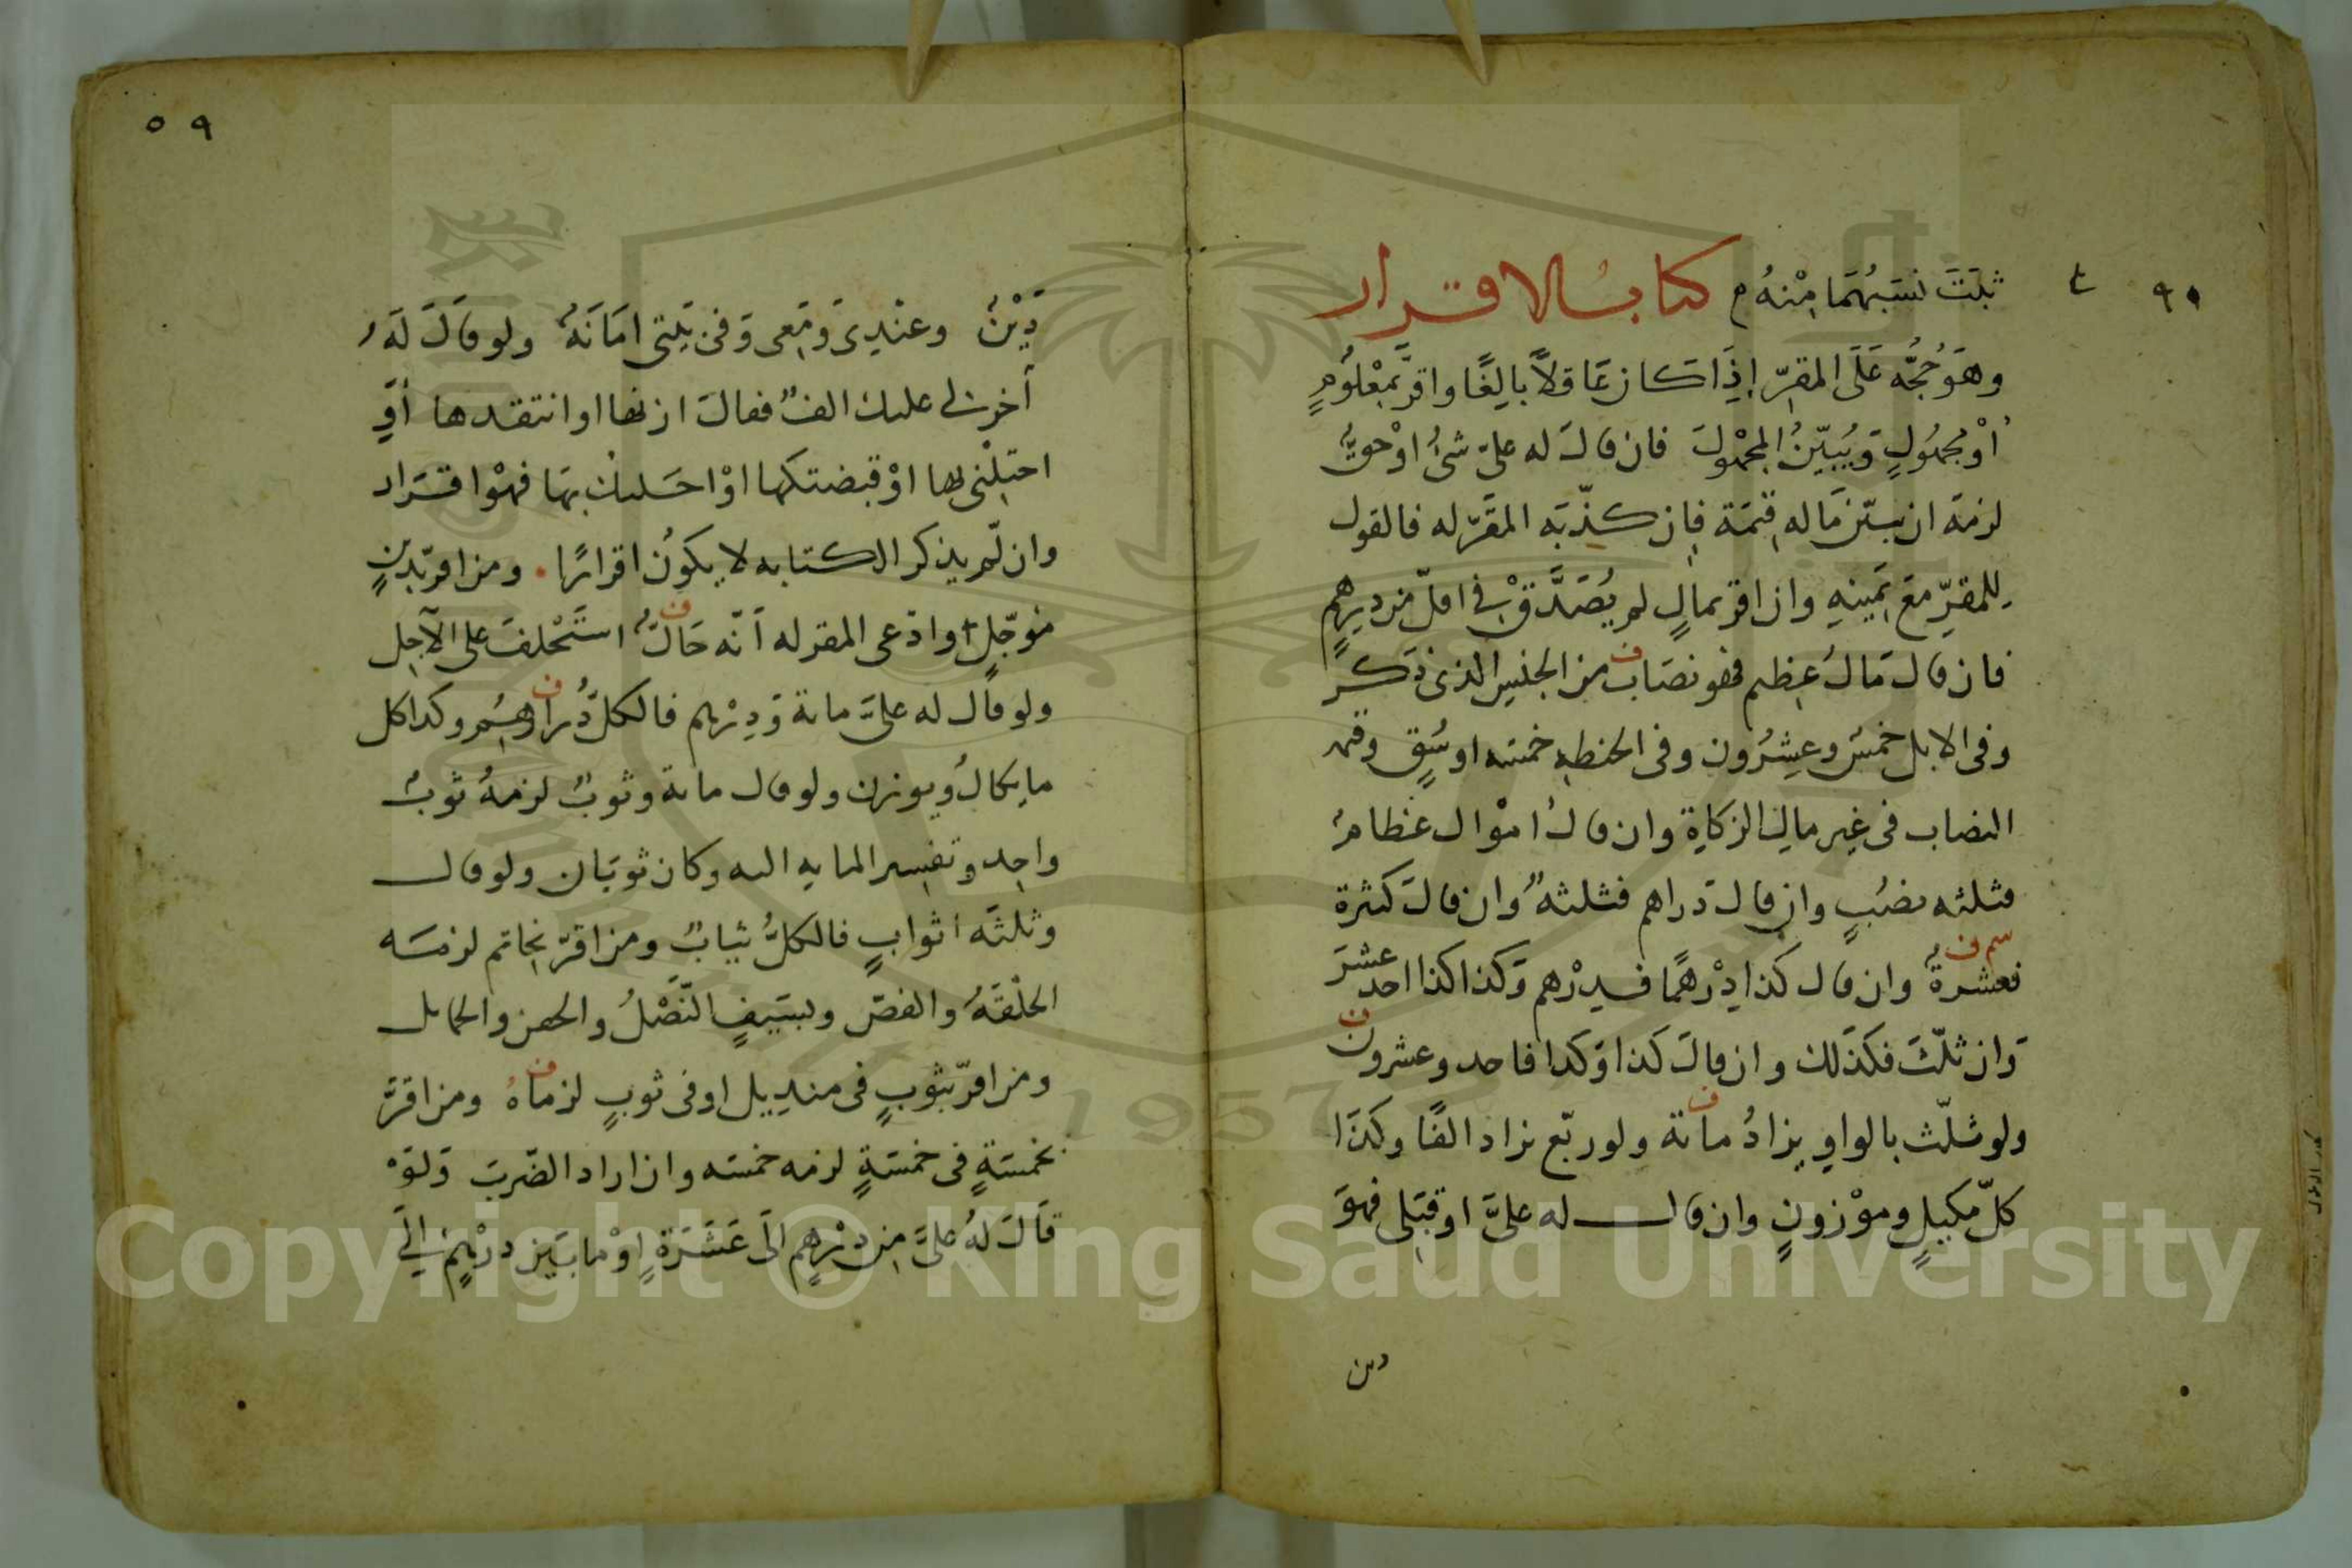 ثبت نسبهما منه م كتاب الاقرار
وهو حجة على المقر إذا كان عاقلاً بالغًا واقر بمعلوم
أو مجهول ويبين المجهول فان قال له على شئ او حق
لزمه ان يبين ماله قيمة فان كذبه المقر له فالقول
للمقر مع يمينه وان اقر بمال لم يصدق في اقل من درهم
فان قال مال عظيم فهو نصاب من الجنس الذى ذكر
وفى الابل خمس وعشرون وفى الحنطه خمسه اوسق وقيمه
النصاب فى غير مال الزكاة وان قال اموال عظام
فثلثه نصب وان قال دراهم فثلثه وان قال كثيرة
فعشرة وان قال كذا درهمًا فدرهم وكذا كذا احد عشر
وان ثلث فكذلك وان قال كذا وكذا فاحد وعشرون
ولو ثلث بالواو يزاد مائة ولو ربع يزاد الفًا وكذا
كل مكيل وموزون وان قال له على او قبلى فهو
دين
٥٩
دين وعندى ومعى وفى بيتى امانة ولو قال له
آخر لى عليك الف فقال ازنها او انتقدها أو
اجلنى بها او قبضتكها او احلتك بها فهو اقرار
وان لم يذكر الكتابه لا يكون اقرارًا . ومن اقر بدين
مؤجل وادعى المقر له انه حال استحلف على الآجل
ولو قال له على مائة ودرهم فالكل دراهم وكذا كل
ما يكال ويوزن ولو قال مائة وثوب لزمه ثوب
واحد وتفسير المايه اليه وكان ثوبان ولو قال
وثلثه اثواب فالكل ثياب ومن اقر بخاتم لزمه
الحلقة والفص وبسيف النصل والجفن والحمايل
ومن اقر بثوب فى منديل او فى ثوب لزماه ومن اقر
بخمسة فى خمسة لزمه خمسه وان اراد الضرب ولو
قال له على من درهم الى عشرة او ما بين درهم الى
Copyright © King Saud University
1957